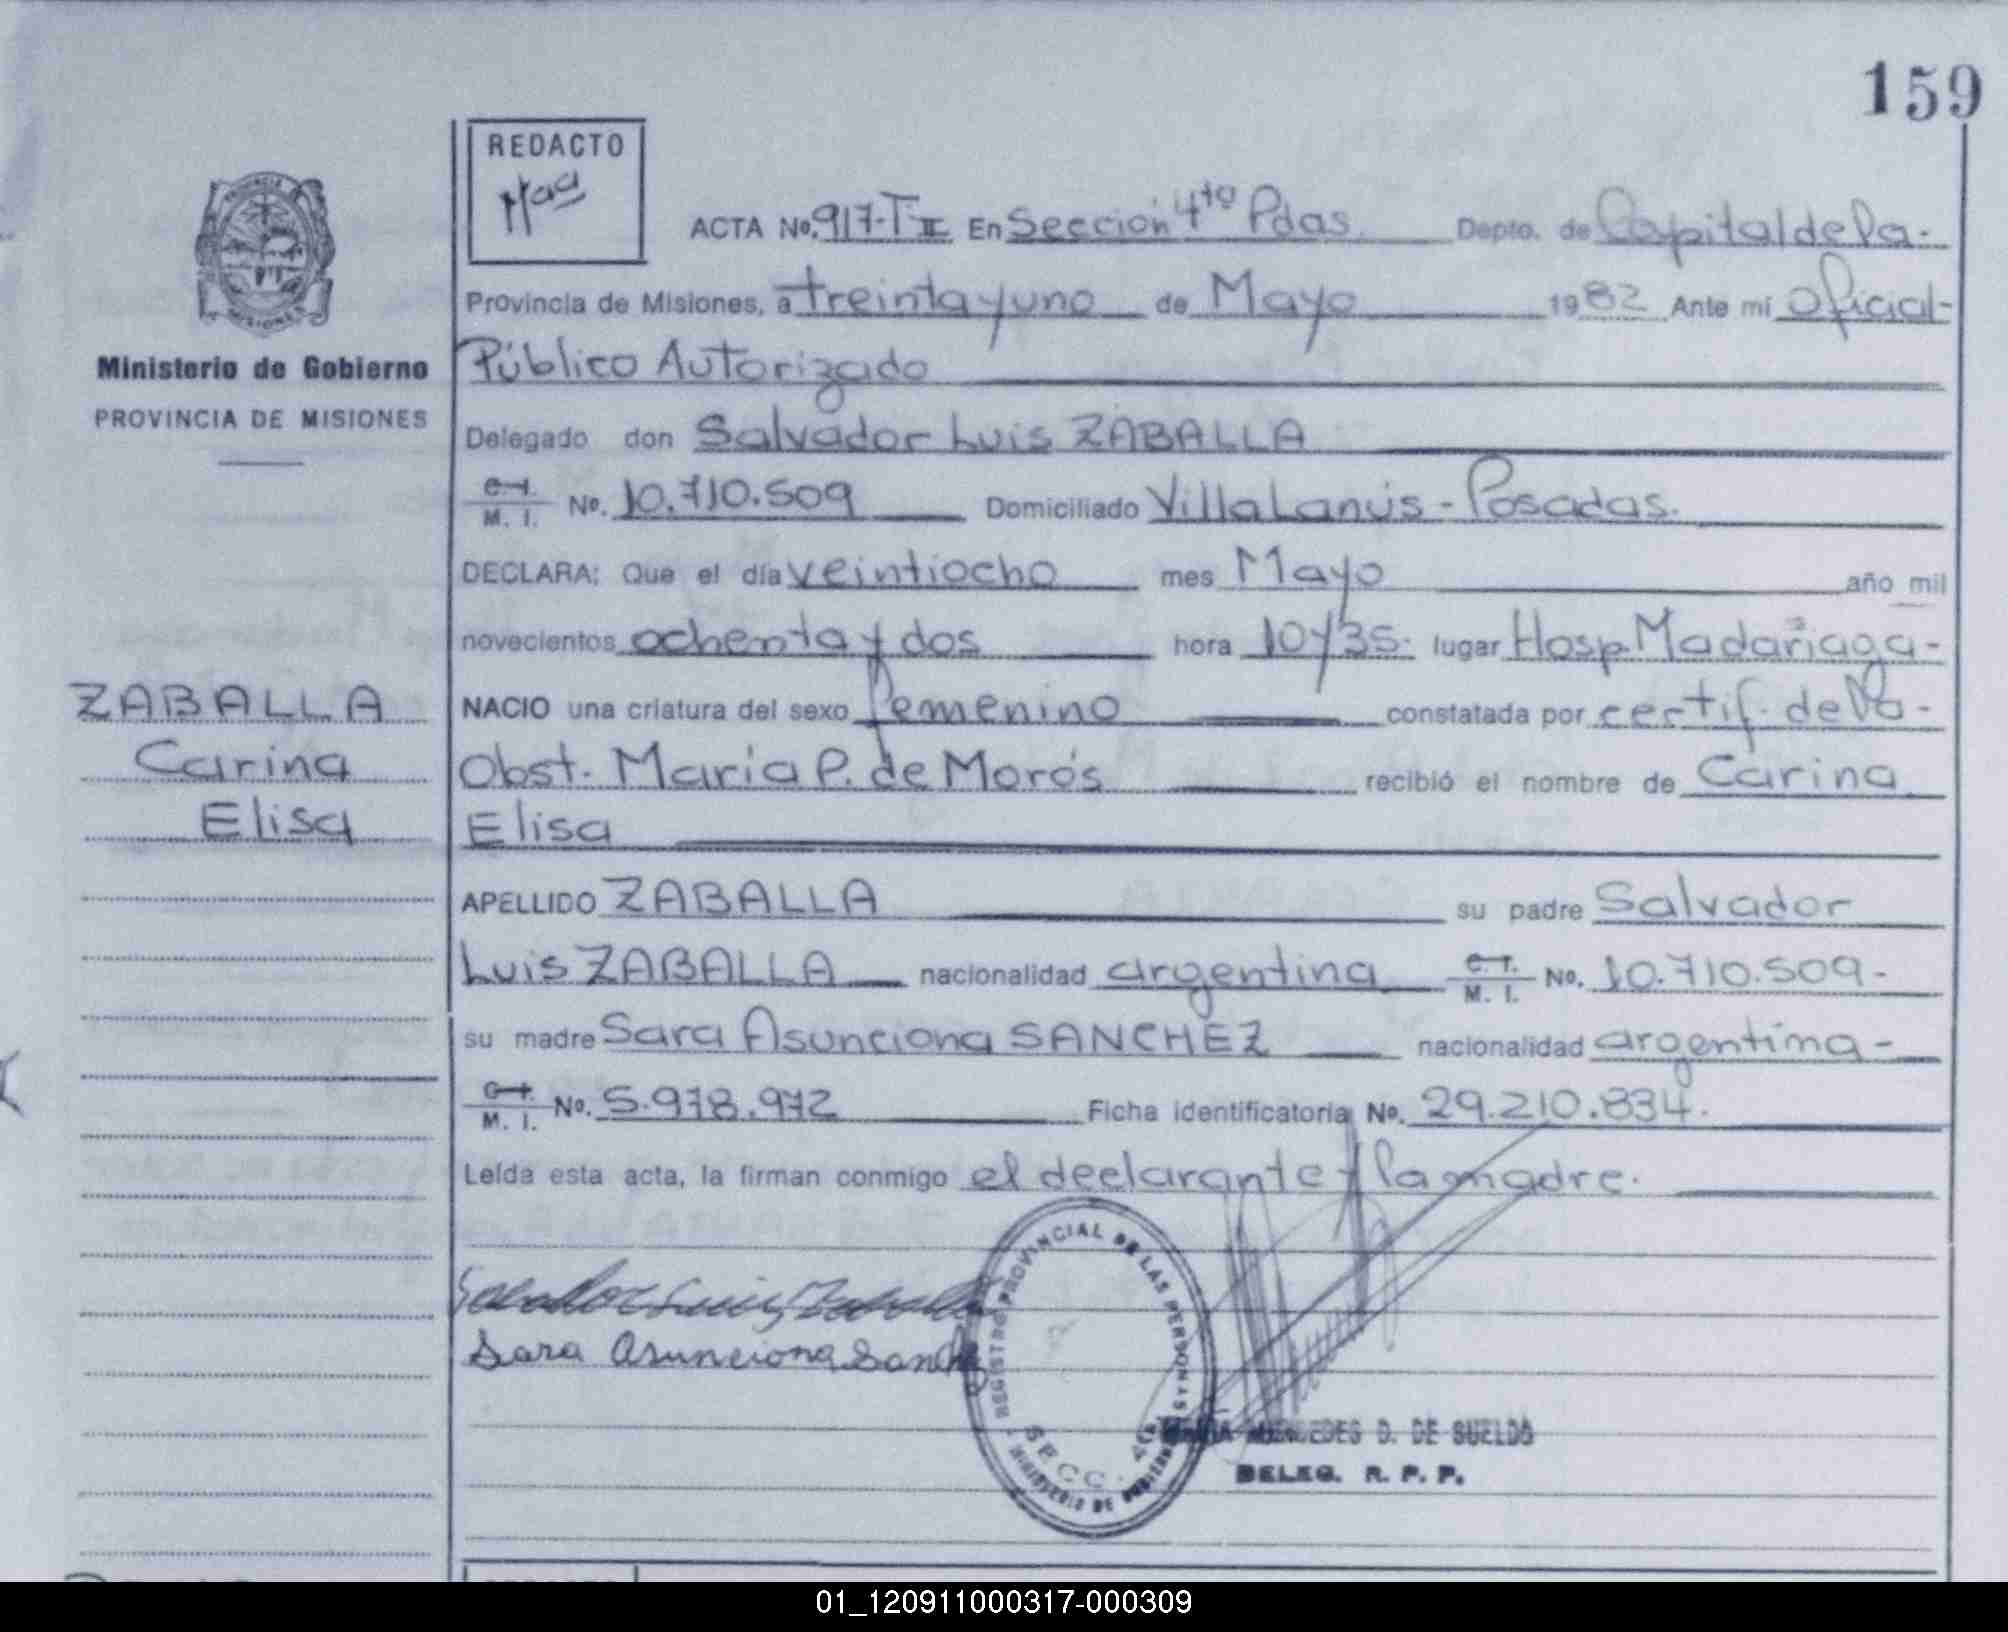 159
REDACTO
ACTA No. 917-T II En Sección 4to Pdas. Depto. de Capital de la-
Provincia de Misiones, a treinta y uno de Mayo 1982 Ante mí Oficial-
Público Autorizado
Delegado don Salvador Luis ZABALLA
C. I.
M. I. No. 10.710.509 Domiciliado Villa Lanús - Posadas.
DECLARA: Que el día veintiocho mes Mayo año mil
novecientos ochenta y dos hora 10 y 35. lugar Hosp. Madariaga-
NACIO una criatura del sexo femenino constatada por certif. de la-
Obst. María P. de Morós recibió el nombre de Carina
Elisa
APELLIDO ZABALLA su padre Salvador
Luis ZABALLA nacionalidad argentina C. I. M. I. No. 10.710.509-
su madre Sara Asunciona SANCHEZ nacionalidad argentina-
C. I.
M. I. No. 5.978.972 Ficha identificatoria No. 29.210.834.
Leída esta acta, la firman conmigo el declarante y la madre.
PROVINCIA DE
MISIONES
Ministerio de Gobierno
PROVINCIA DE MISIONES
ZABALLA
Carina
Elisa
Salvador Luis Zaballa
Sara Asunciona Sanche
REGISTRO PROVINCIAL DE LAS PERSONAS
SECC. 4
MINISTERIO DE GOBIERNO
MARIA MERCEDES D. DE SUELDO
DELEG. R. P. P.
01_120911000317-000309